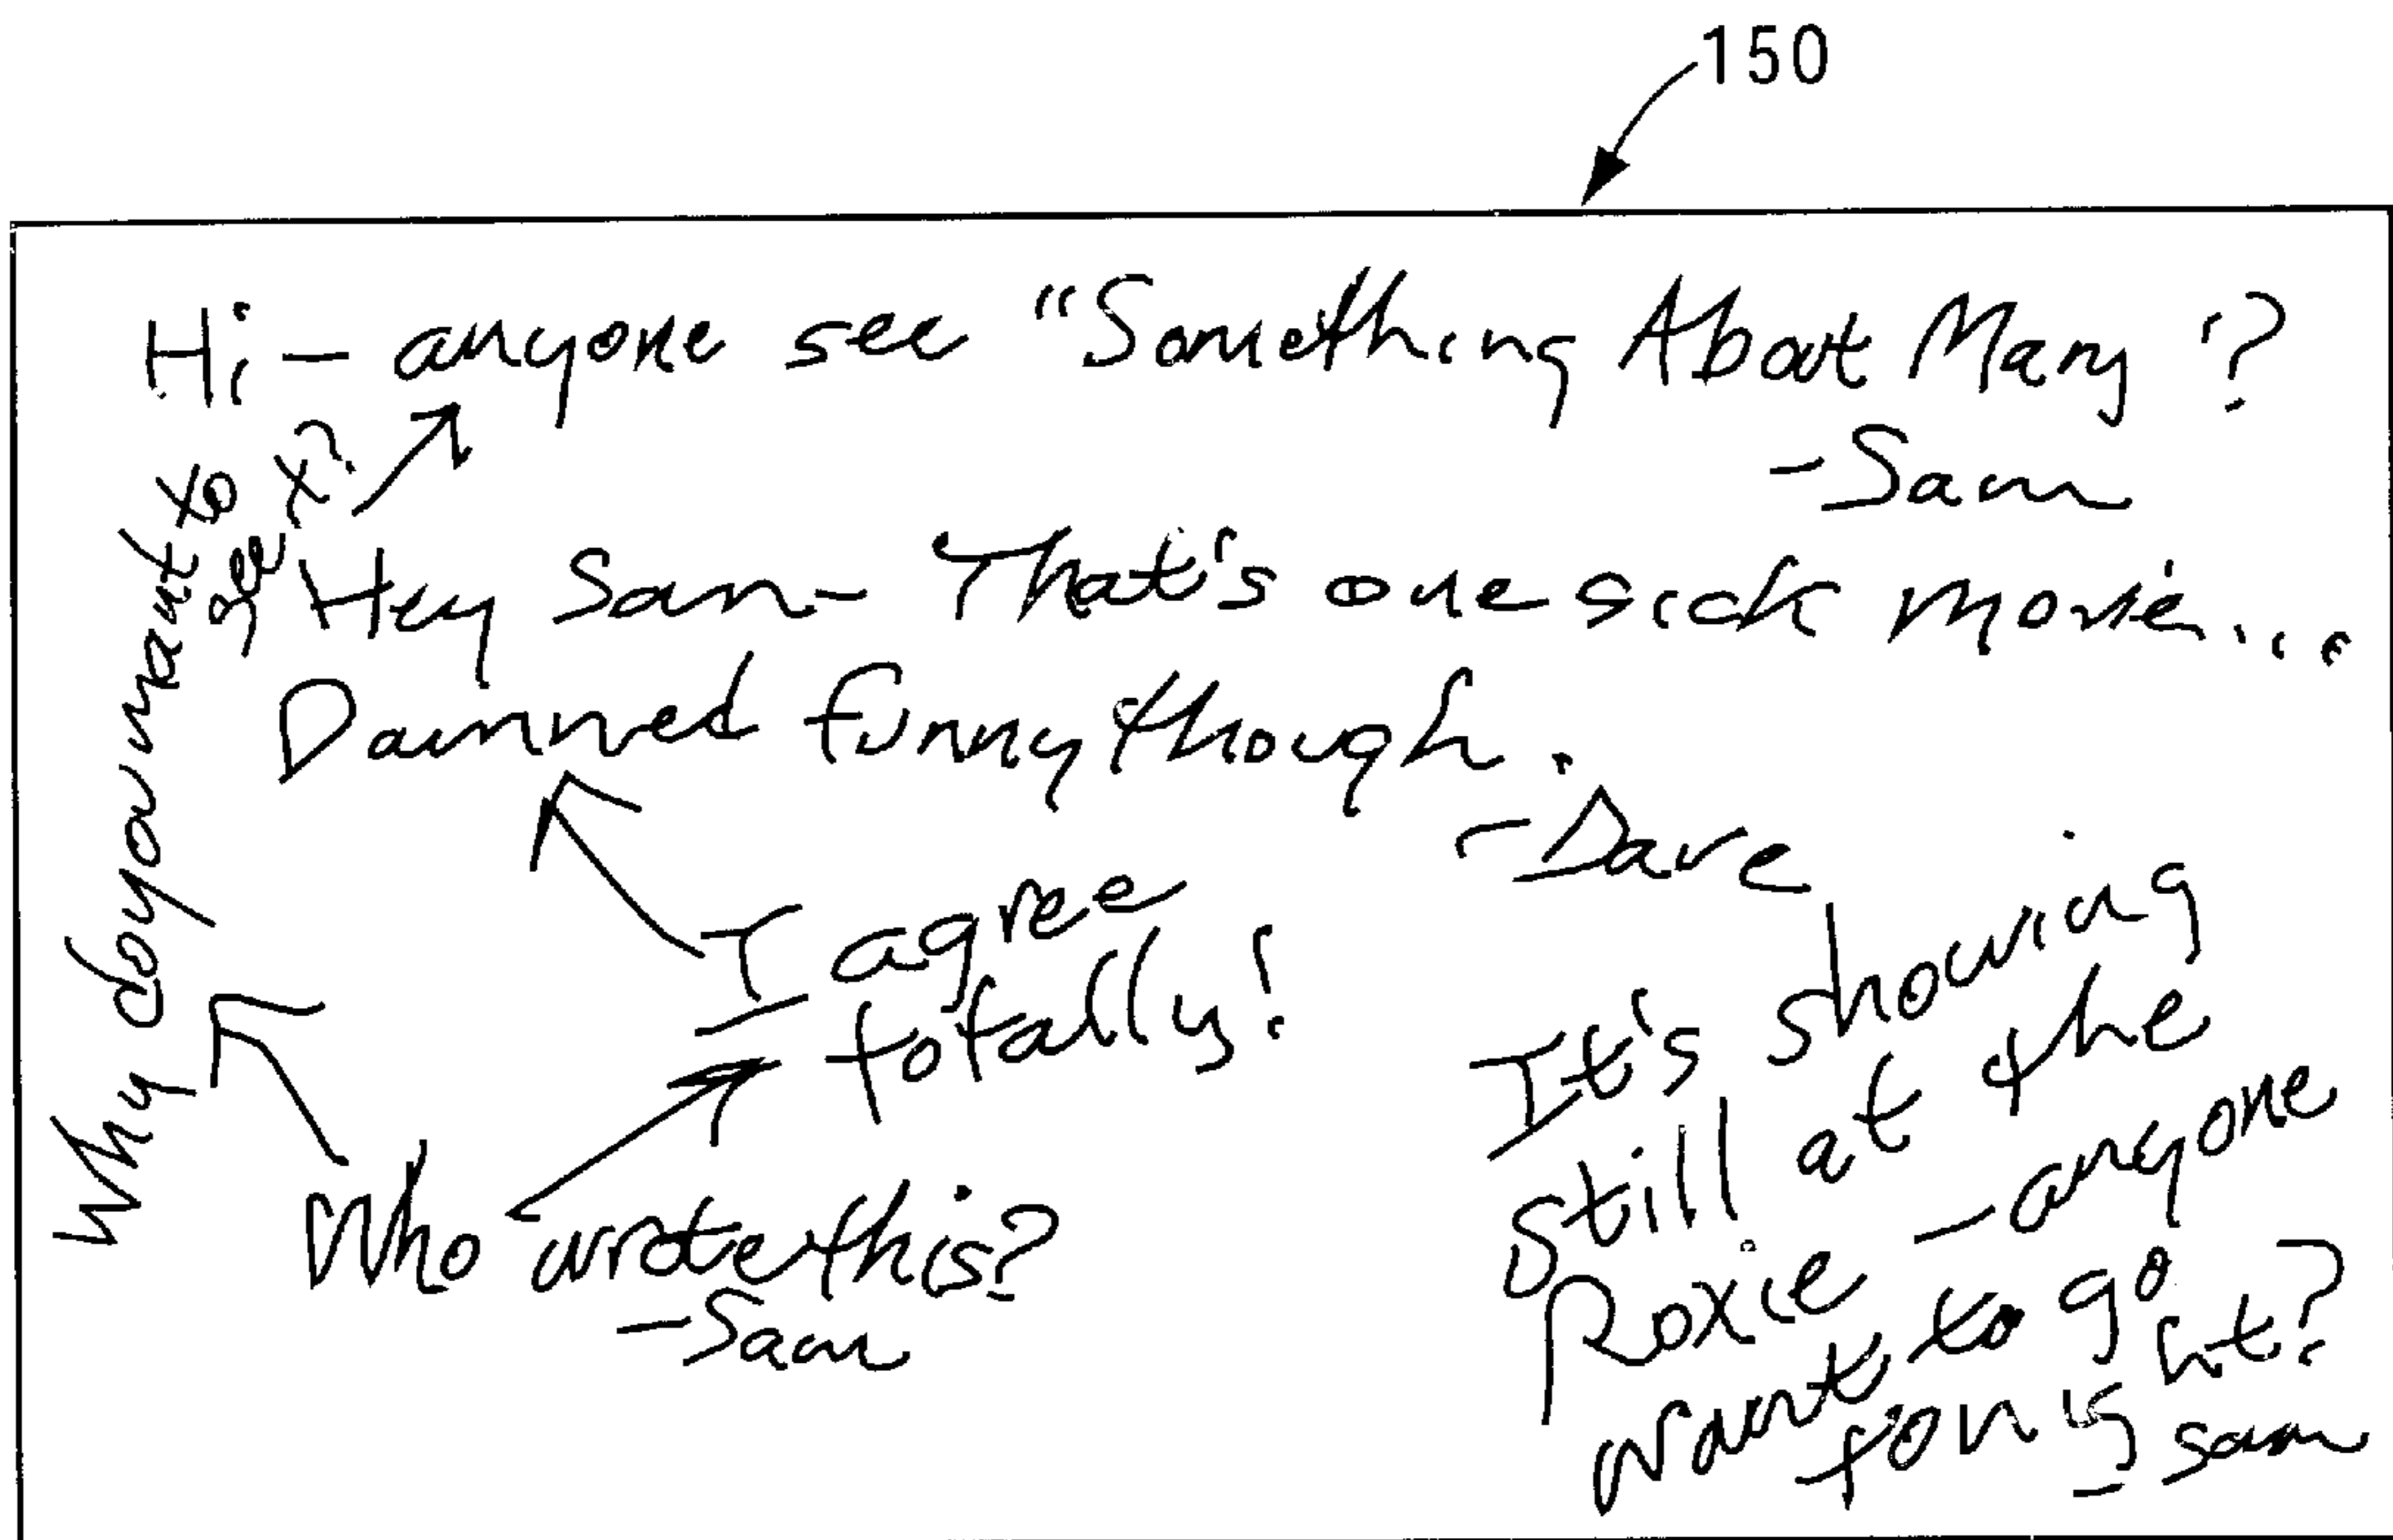 150
Hi - anyone see "Something About Mary?
-Sam
Why do you want to
see it?
Hey Sam- That's one sick movie...
Damned funny though.
-Dave
I agree
totally!
Who wrote this?
-Sam
It's showing
still at the
Roxie - anyone
want to go
tonight?
- Sam